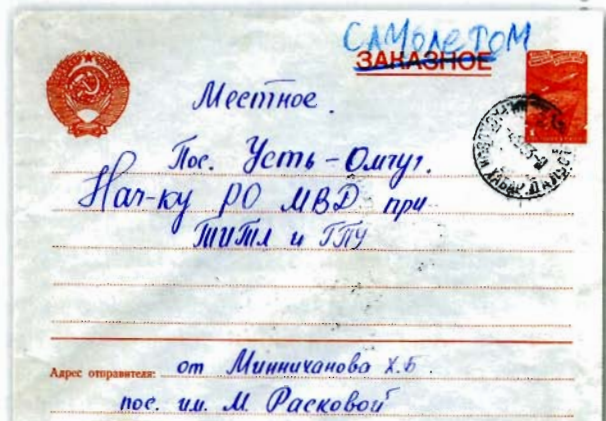 САМОЛЕТОМ
ЗАКАЗНОЕ
Местное.
Пос. Усть-Омчуг.
Нач-ку РО МВД при
ТИТЛ и ГПУ
Адрес отправителя: от Минничанова Х.Б.
пос. им. М. Расковой